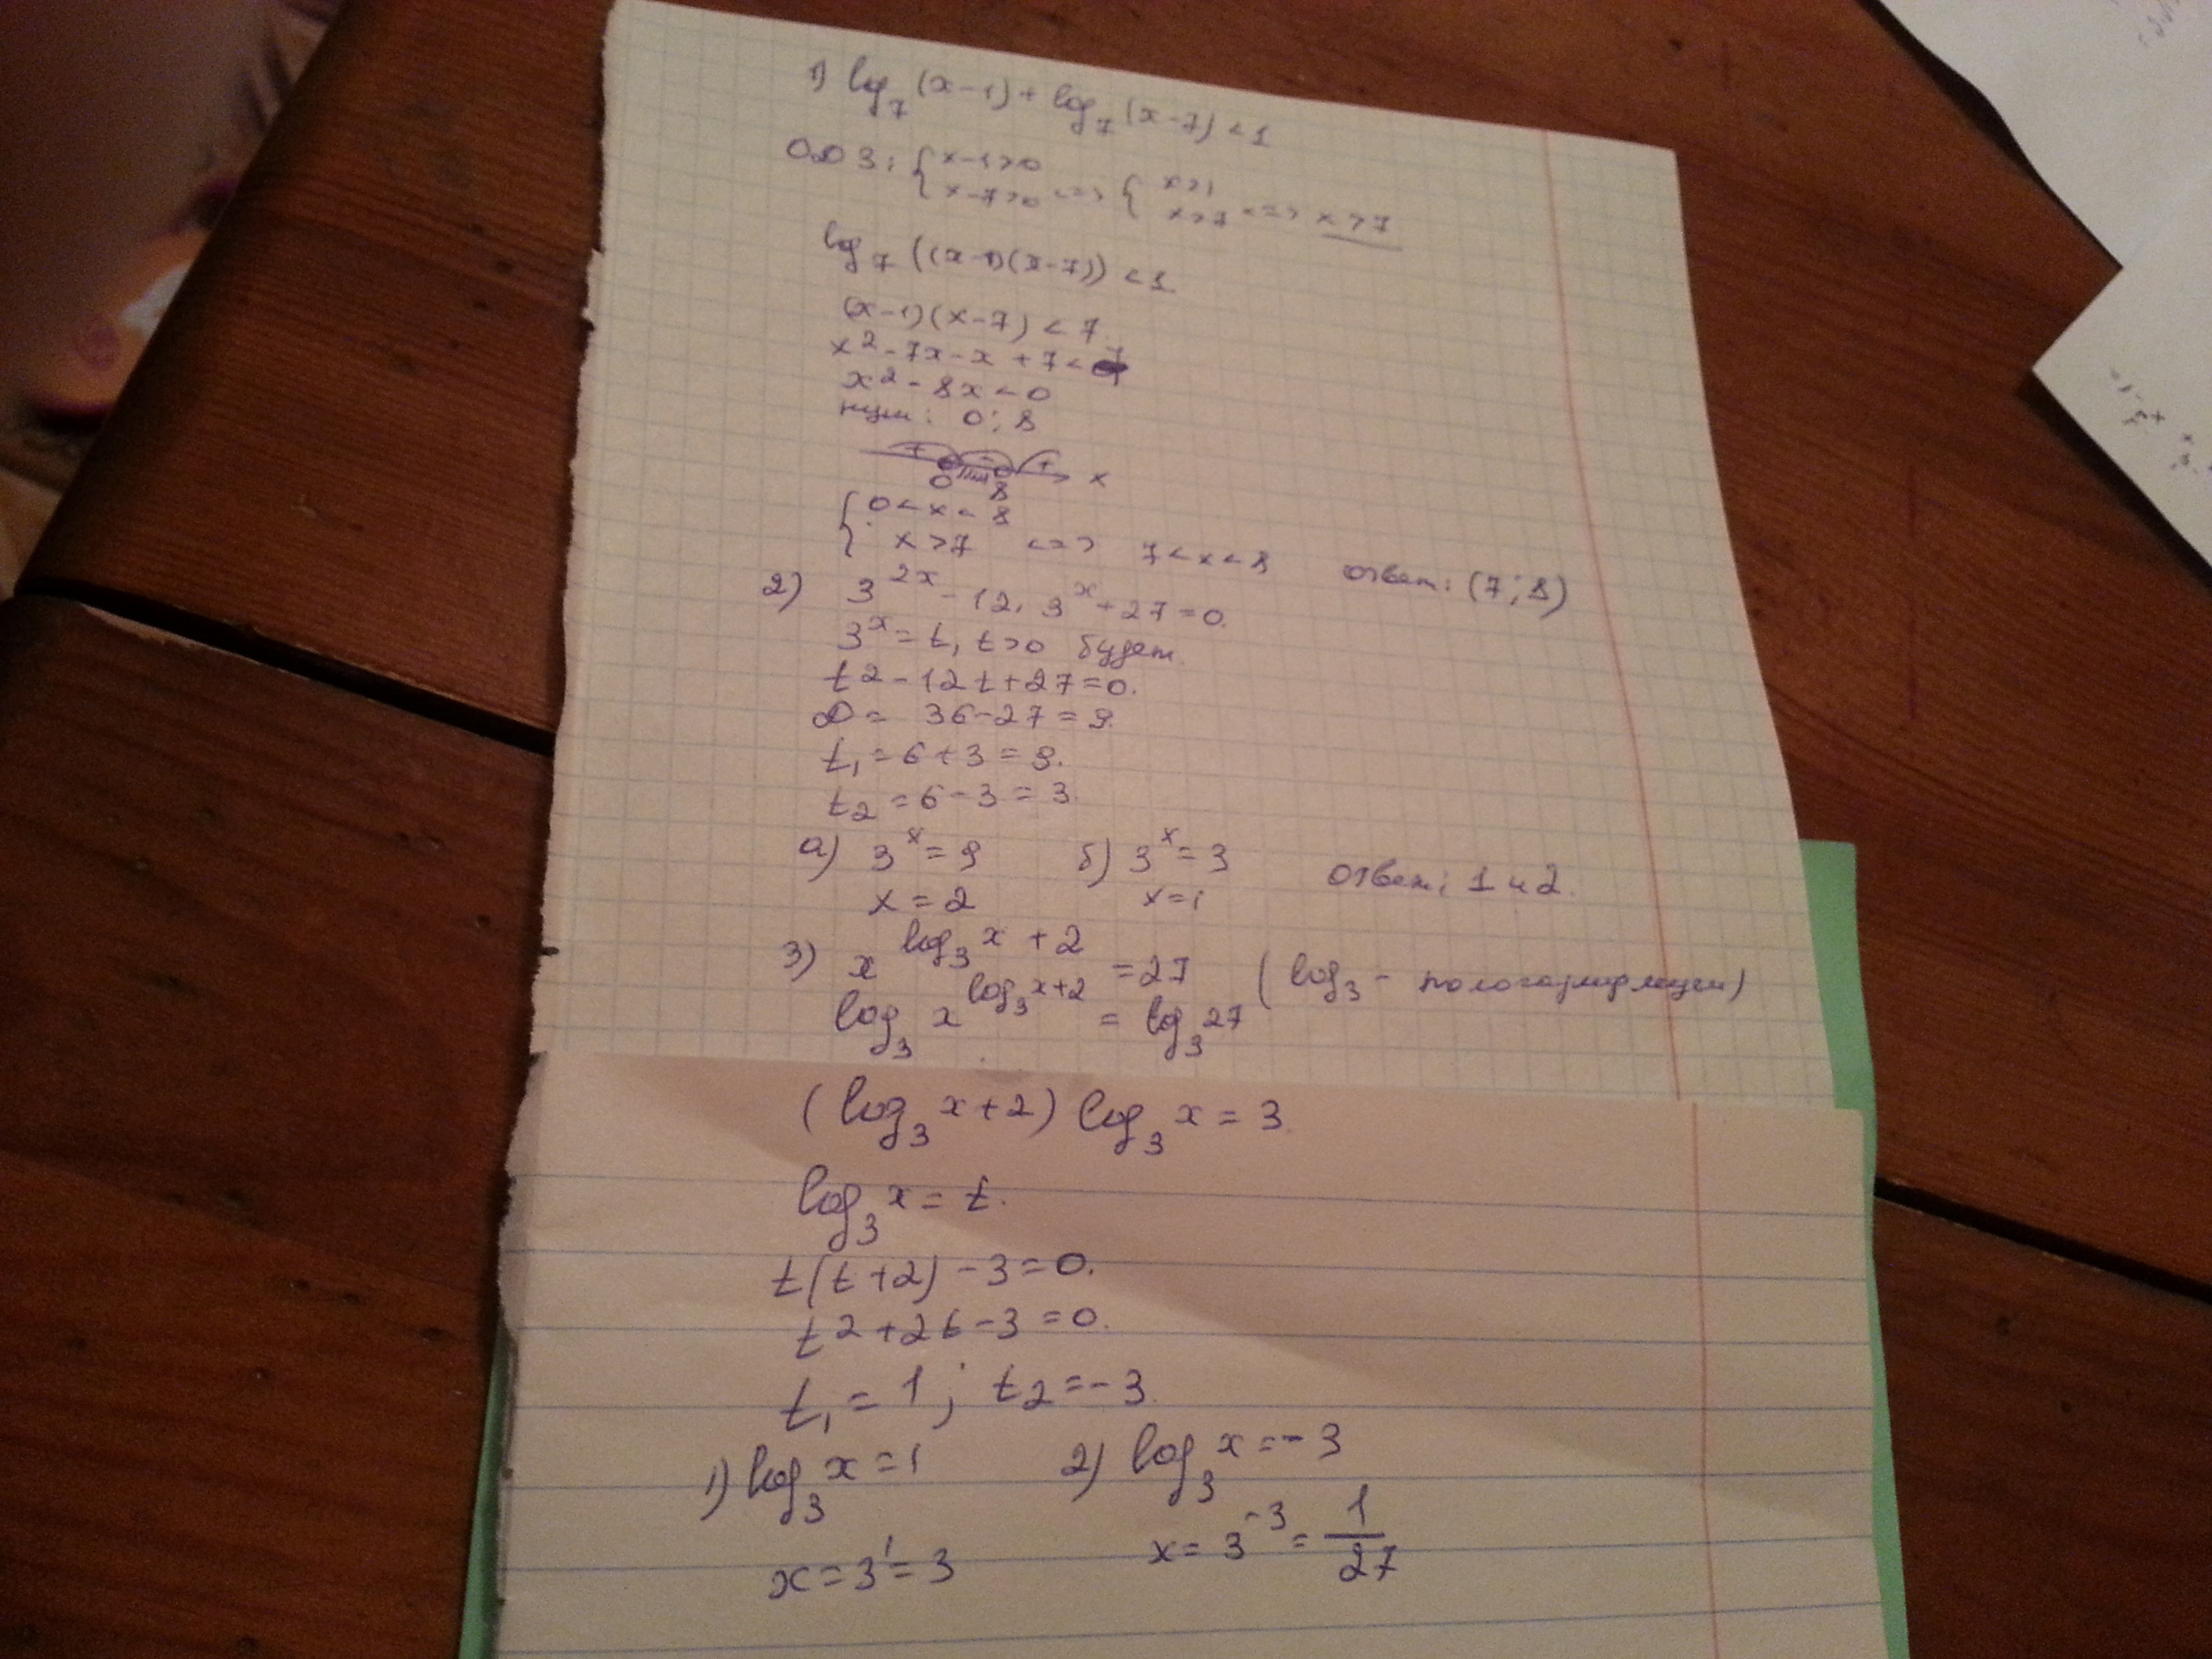 1) log₇(x-1) + log₇(x-7) < 1
ОДЗ: { x-1>0 x-7>0 <=> { x>1 x>7 <=> x>7
log₇((x-1)(x-7)) < 1.
(x-1)(x-7) < 7
x² - 7x - x + 7 < 7
x² - 8x < 0
нули: 0; 8
+ - + 0 8 x
{ 0 < x < 8
x > 7 <=> 7 < x < 8 ответ: (7; 8)
2) 3^{2x} - 12 · 3^x + 27 = 0.
3^x = t, t>0 будет.
t² - 12t + 27 = 0.
D = 36 - 27 = 9.
t₁ = 6 + 3 = 9.
t₂ = 6 - 3 = 3.
а) 3^x = 9 б) 3^x = 3 ответ: 1 и 2.
x = 2 x = 1
3) x^{log₃x + 2} = 27 (log₃ - )
log₃ x^{log₃x+2} = log₃27
(log₃x + 2) log₃x = 3.
log₃x = t.
t(t+2) - 3 = 0.
t² + 2t - 3 = 0.
t₁ = 1; t₂ = -3.
1) log₃x = 1 2) log₃x = -3
x = 3¹ = 3 x = 3⁻³ = 1/27